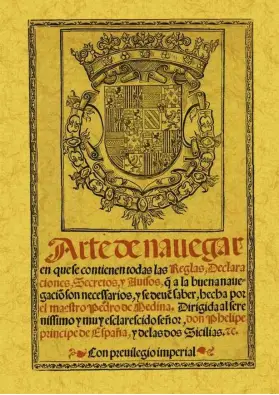 Arte de nauegar
en que se contienen todas las Reglas, Declara
ciones, Secretos, y Auisos, q̃ a la buena naue
gaciõ son necessarios, y se deuẽ saber, hecha por
el maestro Pedro de Medina. Dirigida al sere
nissimo y muy esclarescido señor, don Phelipe
principe de España, y delas dos Sicilias. ꝛc.
Con preuilegio imperial